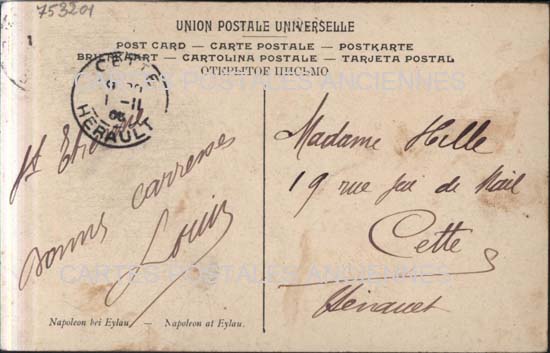 753201
UNION POSTALE UNIVERSELLE
POST CARD — CARTE POSTALE — POSTKARTE
BRIEFKAART — CARTOLINA POSTALE — TARJETA POSTAL
ОТКРЫТОЕ ПИСЬМО
CETTE
1 - 11
HERAULT
CARTES POSTALES ANCIENNES
St Etienne
bonnes carresses
Louis
Madame Hille
19 rue de Mail
Cette
Hérault
CARTES POSTALES ANCIENNES
Napoleon bei Eylau. — Napoleon at Eylau.